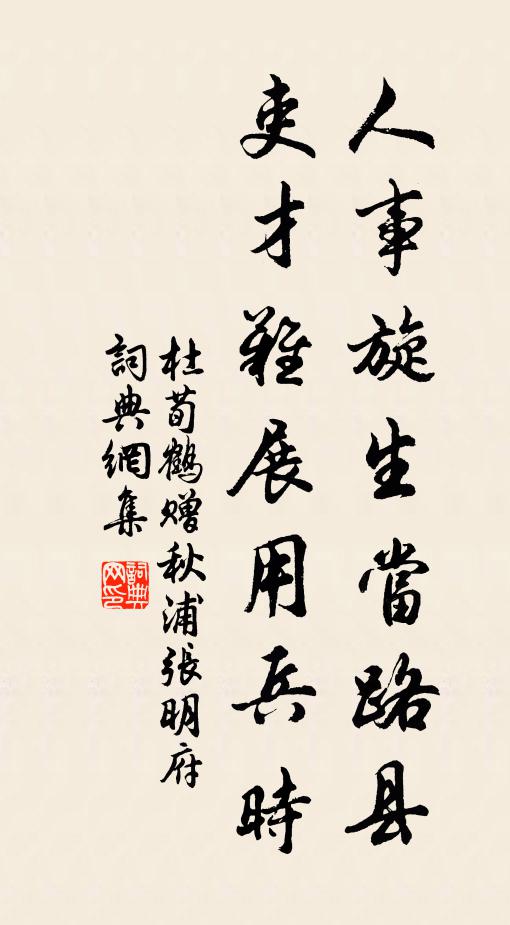 人事旋生當路县
吏才難展用兵時
杜荀鶴赠秋浦張明府
詞典網集
詞典网印